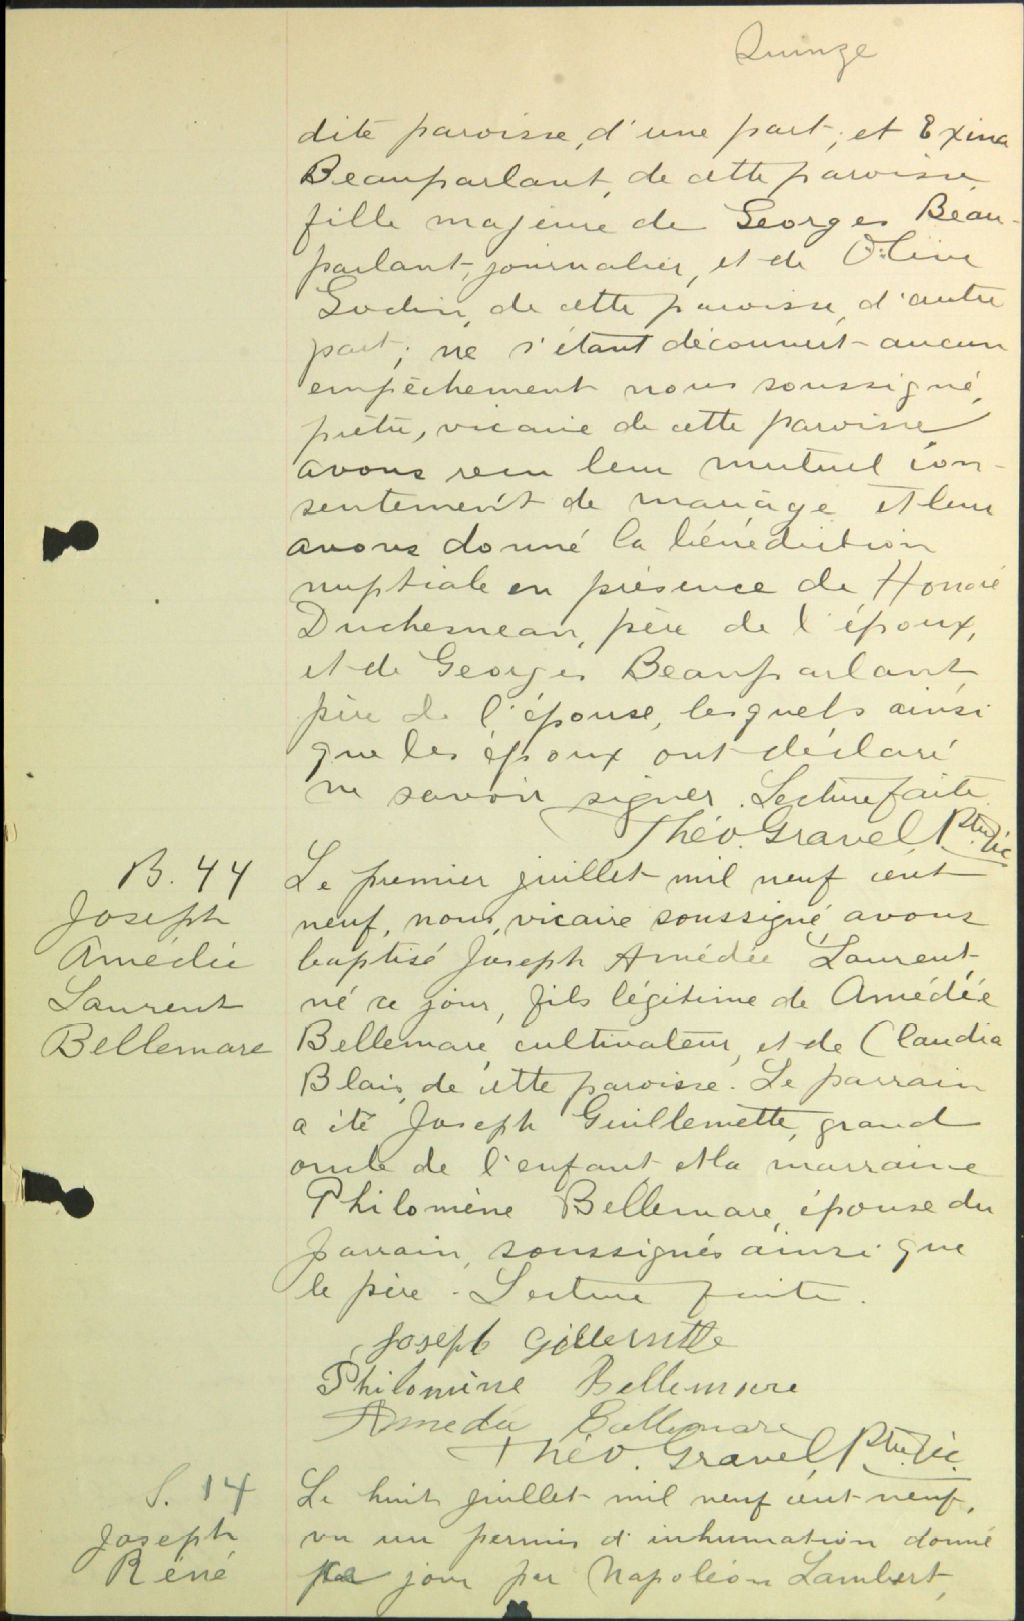 Quinze
dite paroisse, d'une part, et Exina
Beauparlant, de cette paroisse,
fille majeure de Georges Beau-
parlant, journalier, et de Olive
Godin, de cette paroisse, d'autre
part; ne s'étant découvert aucun
empêchement nous soussigné,
prêtre, vicaire de cette paroisse
avons reçu leur mutuel con-
sentement de mariage et leur
avons donné la bénédiction
nuptiale en présence de Honoré
Duchesneau, père de l'époux,
et de Georges Beauparlant,
père de l'épouse, lesquels ainsi
que les époux ont déclaré
ne savoir signer. Lecture faite.
Théo. Gravel Ptre. Vic
B. 44
Joseph
Amédée
Laurent
Bellemare
Le premier juillet mil neuf cent
neuf, nous, vicaire soussigné, avons
baptisé Joseph Amédée Laurent,
né ce jour, fils légitime de Amédée
Bellemare, cultivateur, et de Claudia
Blais, de cette paroisse. Le parrain
a été Joseph Guillemette, grand
oncle de l'enfant, et la marraine
Philomène Bellemare, épouse du
parrain, soussignés ainsi que
le père. Lecture faite.
Joseph Gillemette
Philomène Bellemare
Amedée Bellemare
Théo. Gravel, Ptre. Vic.
S. 14
Joseph
Réné
Le huit juillet mil neuf cent neuf,
vu un permis d'inhumation donné
jour par Napoléon Lambert,